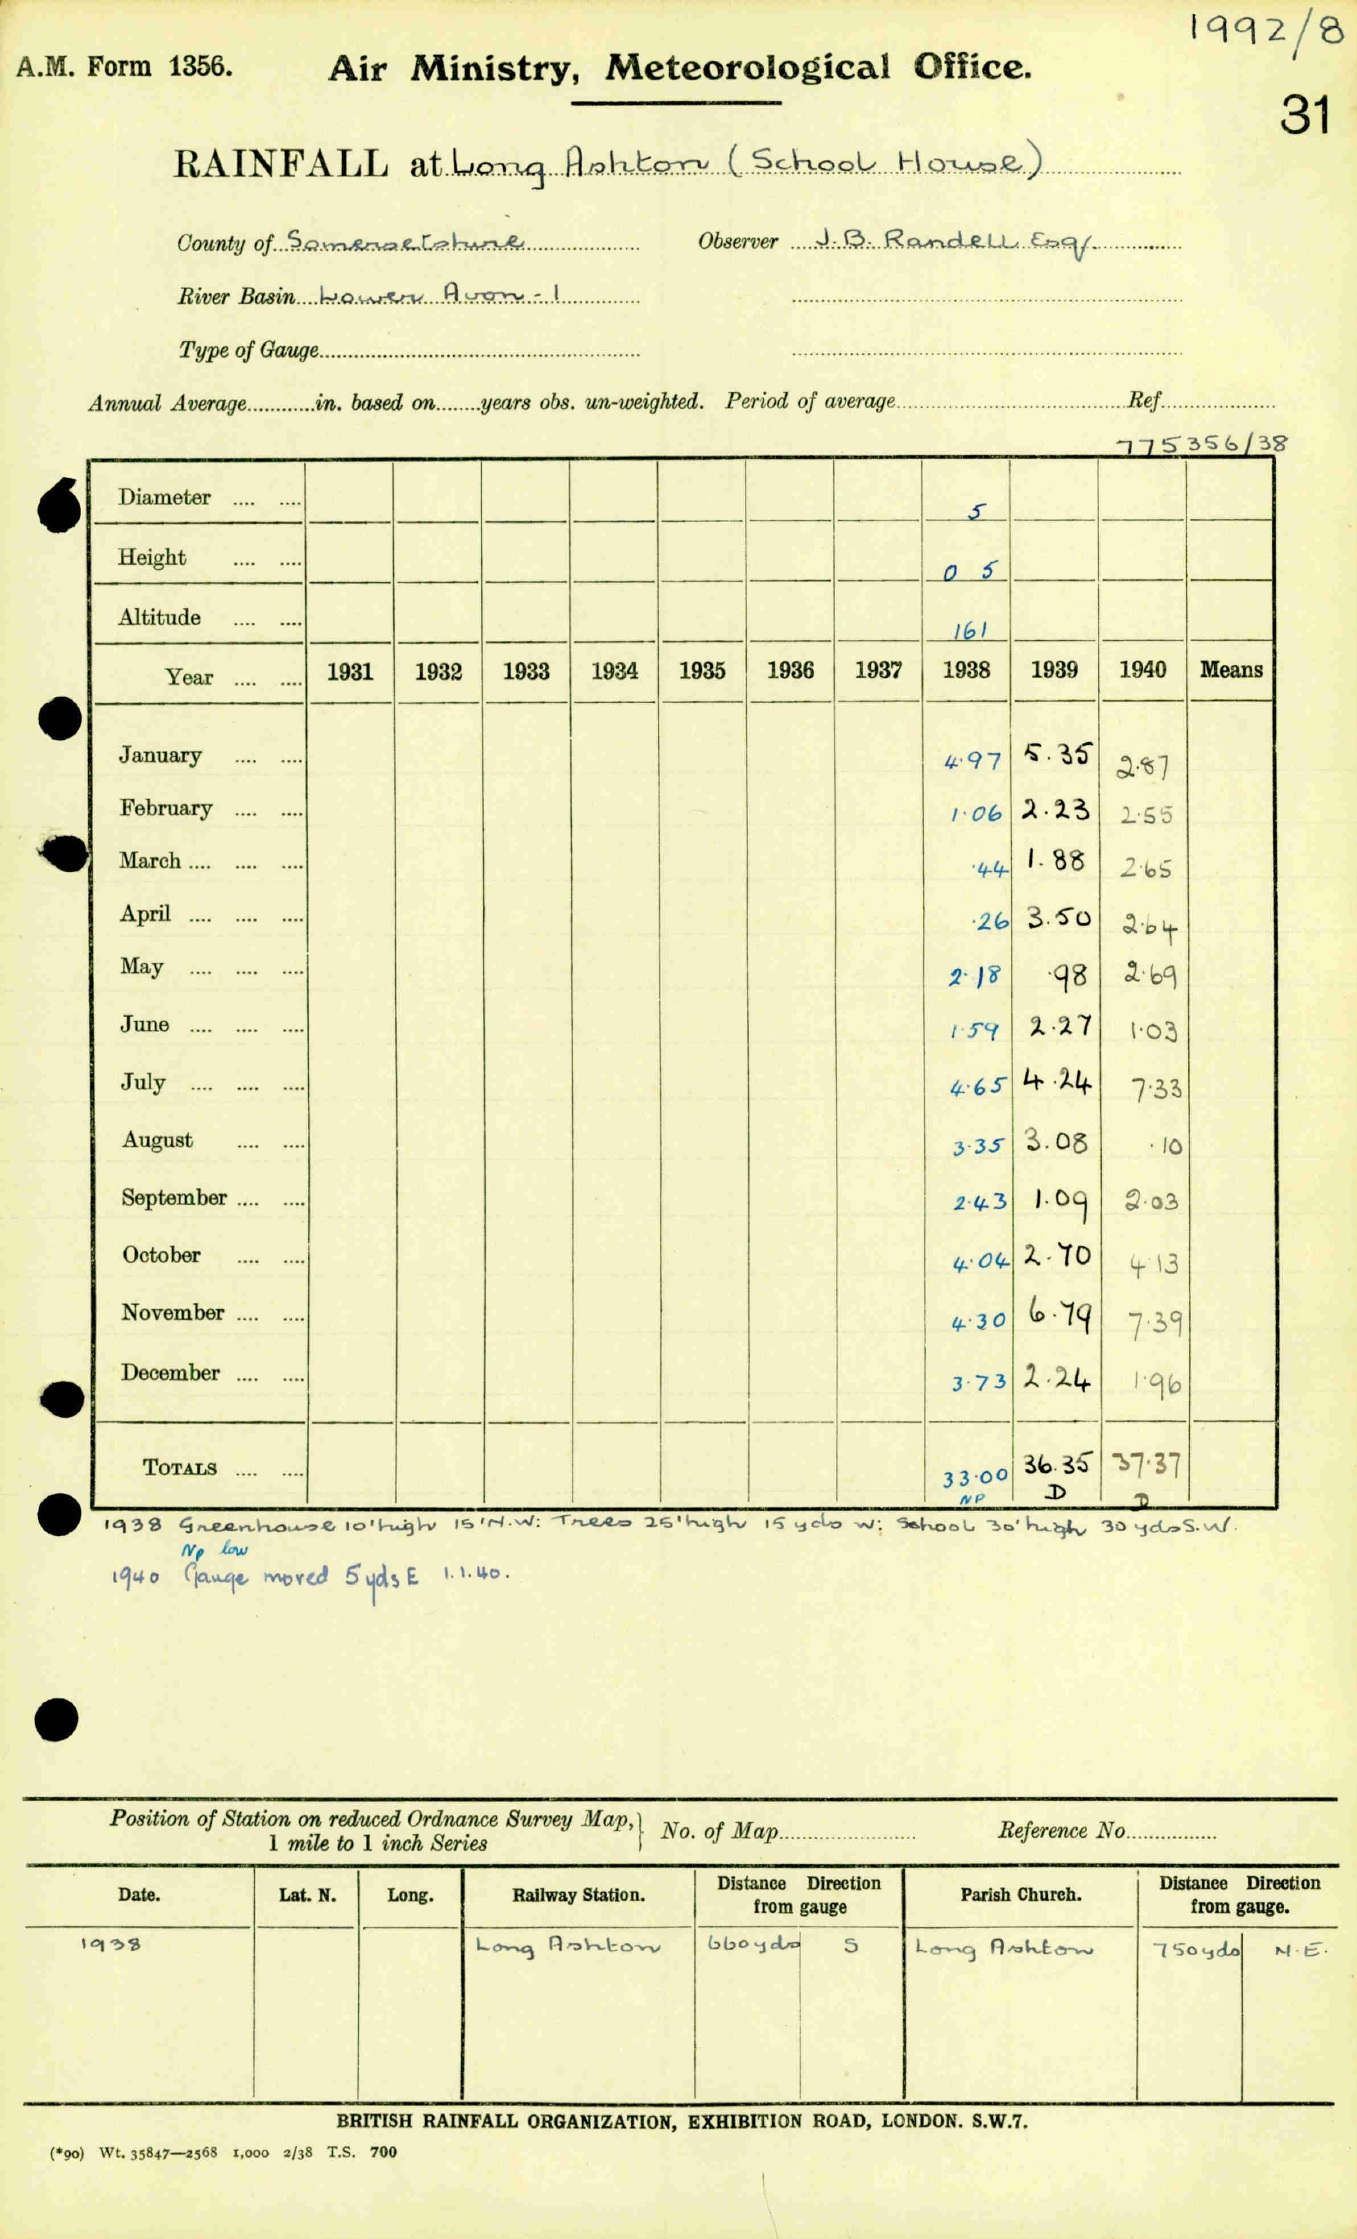 1992/8
A.M. Form 1356. Air Ministry, Meteorological Office.
31
RAINFALL at Long Ashton (School House)
County of Somersetshire Observer J.B. Randell Esq/.
River Basin Lower Avon - 1
Type of Gauge
Annual Average in. based on years obs. un-weighted. Period of average Ref.
775356/38
Diameter .... .... 5
Height .... .... 0 5
Altitude .... .... 161
Year .... .... 1931 1932 1933 1934 1935 1936 1937 1938 1939 1940 Means
January .... .... 4.97 5.35 2.87
February .... .... 1.06 2.23 2.55
March .... .... .... .44 1.88 2.65
April .... .... .... .26 3.50 2.64
May .... .... .... 2.18 .98 2.69
June .... .... .... 1.59 2.27 1.03
July .... .... .... 4.65 4.24 7.33
August .... .... 3.35 3.08 .10
September .... .... 2.43 1.09 2.03
October .... .... 4.04 2.70 4.13
November .... .... 4.30 6.79 7.39
December .... .... 3.73 2.24 1.96
TOTALS .... .... 33.00 36.35 37.37
NP D D
1938 Greenhouse 10' high 15' N.W: Trees 25' high 15 yds W: School 30' high 30 yds S.W.
Np low
1940 Gauge moved 5 yds E 1.1.40.
Position of Station on reduced Ordnance Survey Map, } No. of Map Reference No.
1 mile to 1 inch Series
Date. Lat. N. Long. Railway Station. Distance Direction from gauge Parish Church. Distance Direction from gauge.
1938 Long Ashton 660 yds S Long Ashton 750 yds N.E.
BRITISH RAINFALL ORGANIZATION, EXHIBITION ROAD, LONDON. S.W.7.
(*90) Wt. 35847—2568 1,000 2/38 T.S. 700